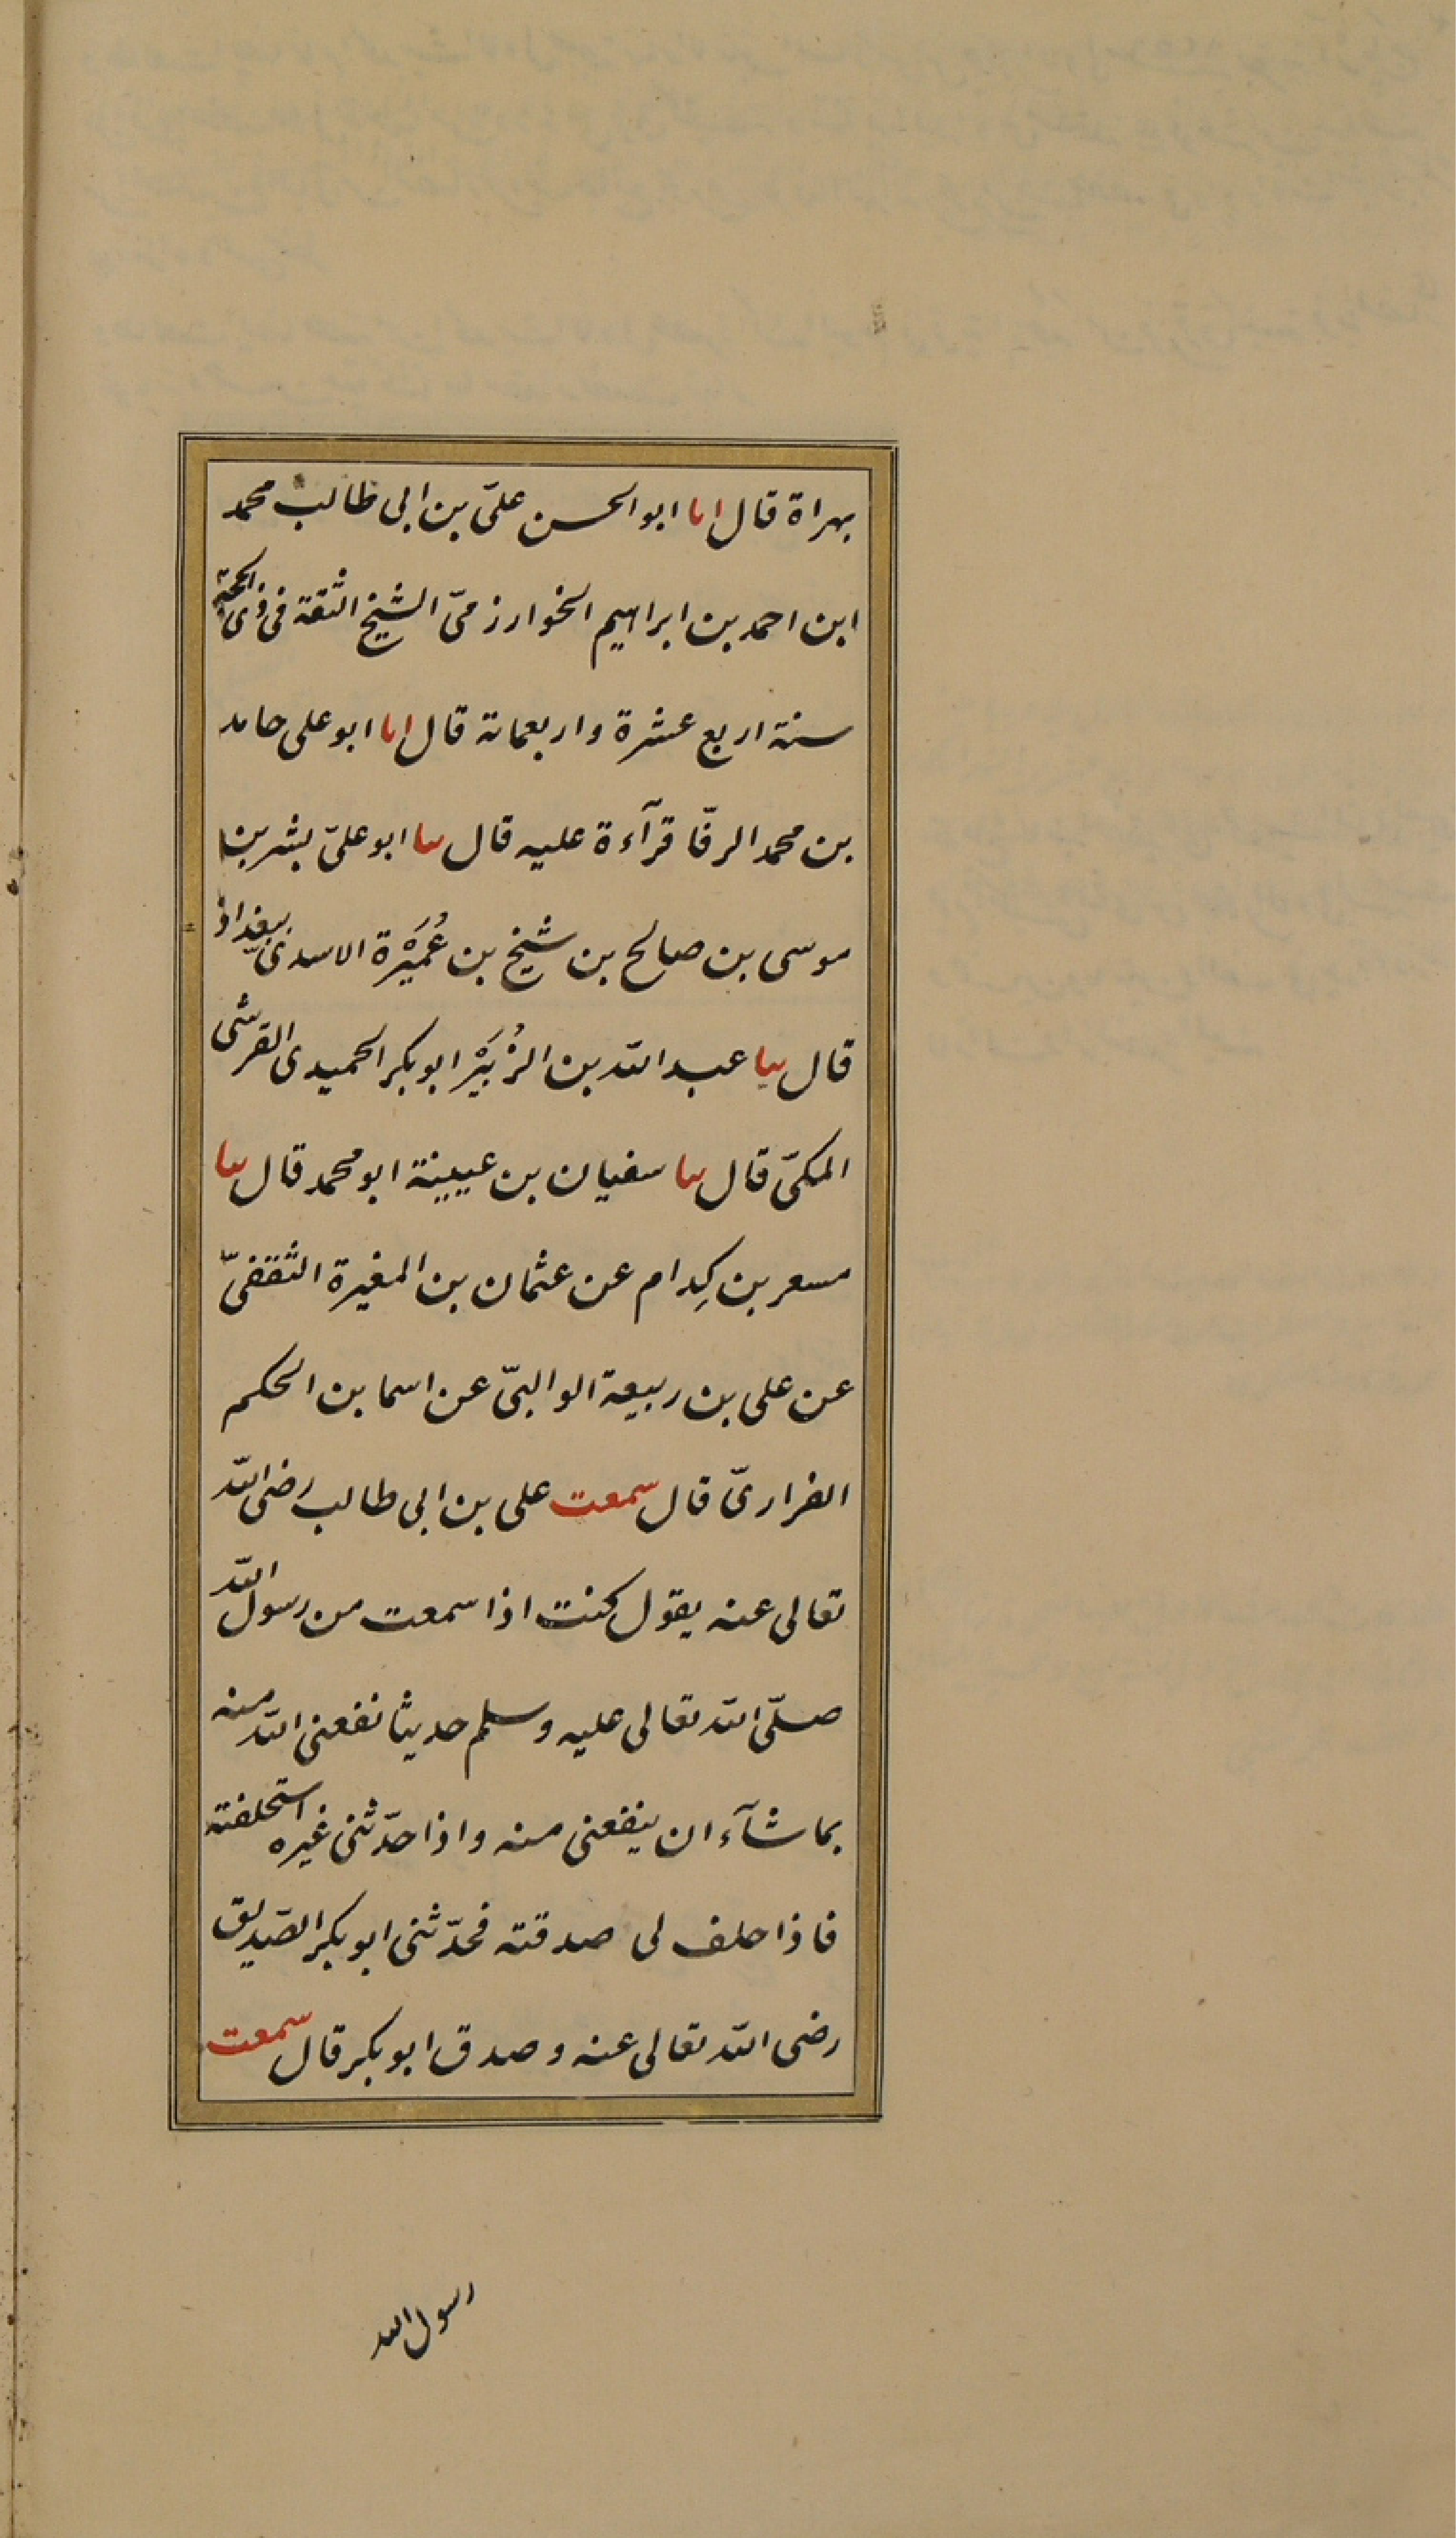 بهراة قال انا ابو الحسن علىّ بن ابى طالب محمد
ابن احمد بن ابراهيم الخوارزمىّ الشيخ الثقة فى ذى الحجة
سنة اربع عشرة واربعمائة قال انا ابو على حامد
بن محمد الرفّا قرآءة عليه قال ثنا ابو علىّ بشر بن
موسى بن صالح بن شيخ بن عُمَيْرَة الاسدى ببغداذ
قال ثنا عبد الله بن الزُبَيْر ابو بكر الحميدى القرشى
المكىّ قال ثنا سفيان بن عيينة ابو محمد قال ثنا
مسعر بن كِدام عن عثمان بن المغيرة الثقفىّ
عن على بن ربيعة الوالبىّ عن اسما بن الحكم
الفزارىّ قال سمعت على بن ابى طالب رضى الله
تعالى عنه يقول كنت اذا سمعت من رسول الله
صلّى الله تعالى عليه وسلم حديثا نفعنى الله منه
بما شآء ان ينفعنى منه واذا حدّثنى غيره استحلفته
فاذا حلف لى صدقته فحدّثنى ابو بكر الصّديق
رضى الله تعالى عنه وصدق ابو بكر قال سمعت
رسول الله